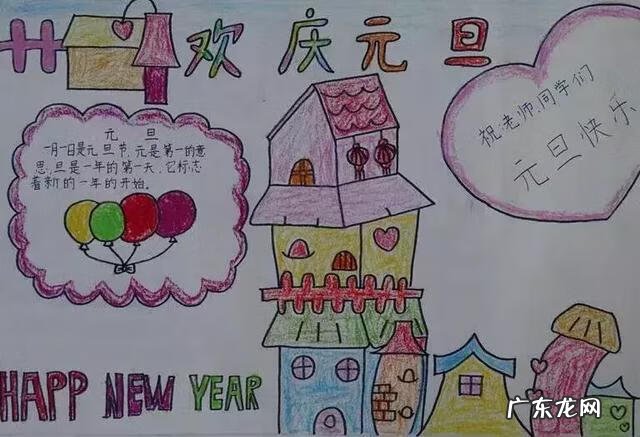 欢庆元旦
元 旦
一月一日是元旦节,元是第一的意
思,旦是一年的第一天,它标志
着新的一年的开始。
祝:老师、同学们
元旦快乐
HAPP NEW YEAR
广东龙网